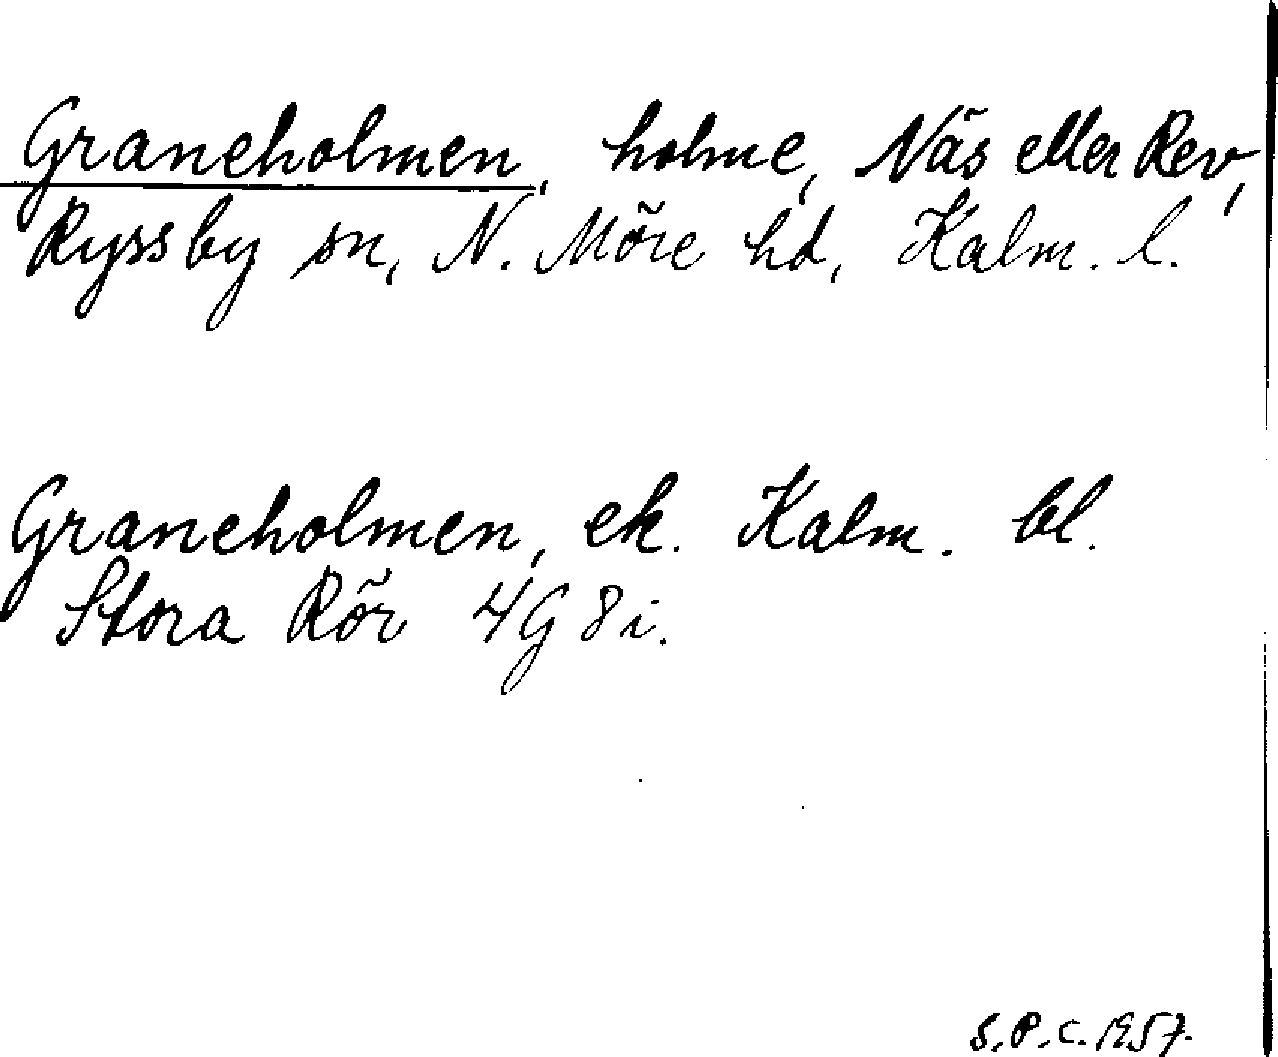 Graneholmen, holme, Näs eller Rev,
Ryssby sn, N. Möre hd, Kalm. l.
Graneholmen, ek. Kalm. bl.
Stora Rör 4G 8i.
S.P.C. 1957.